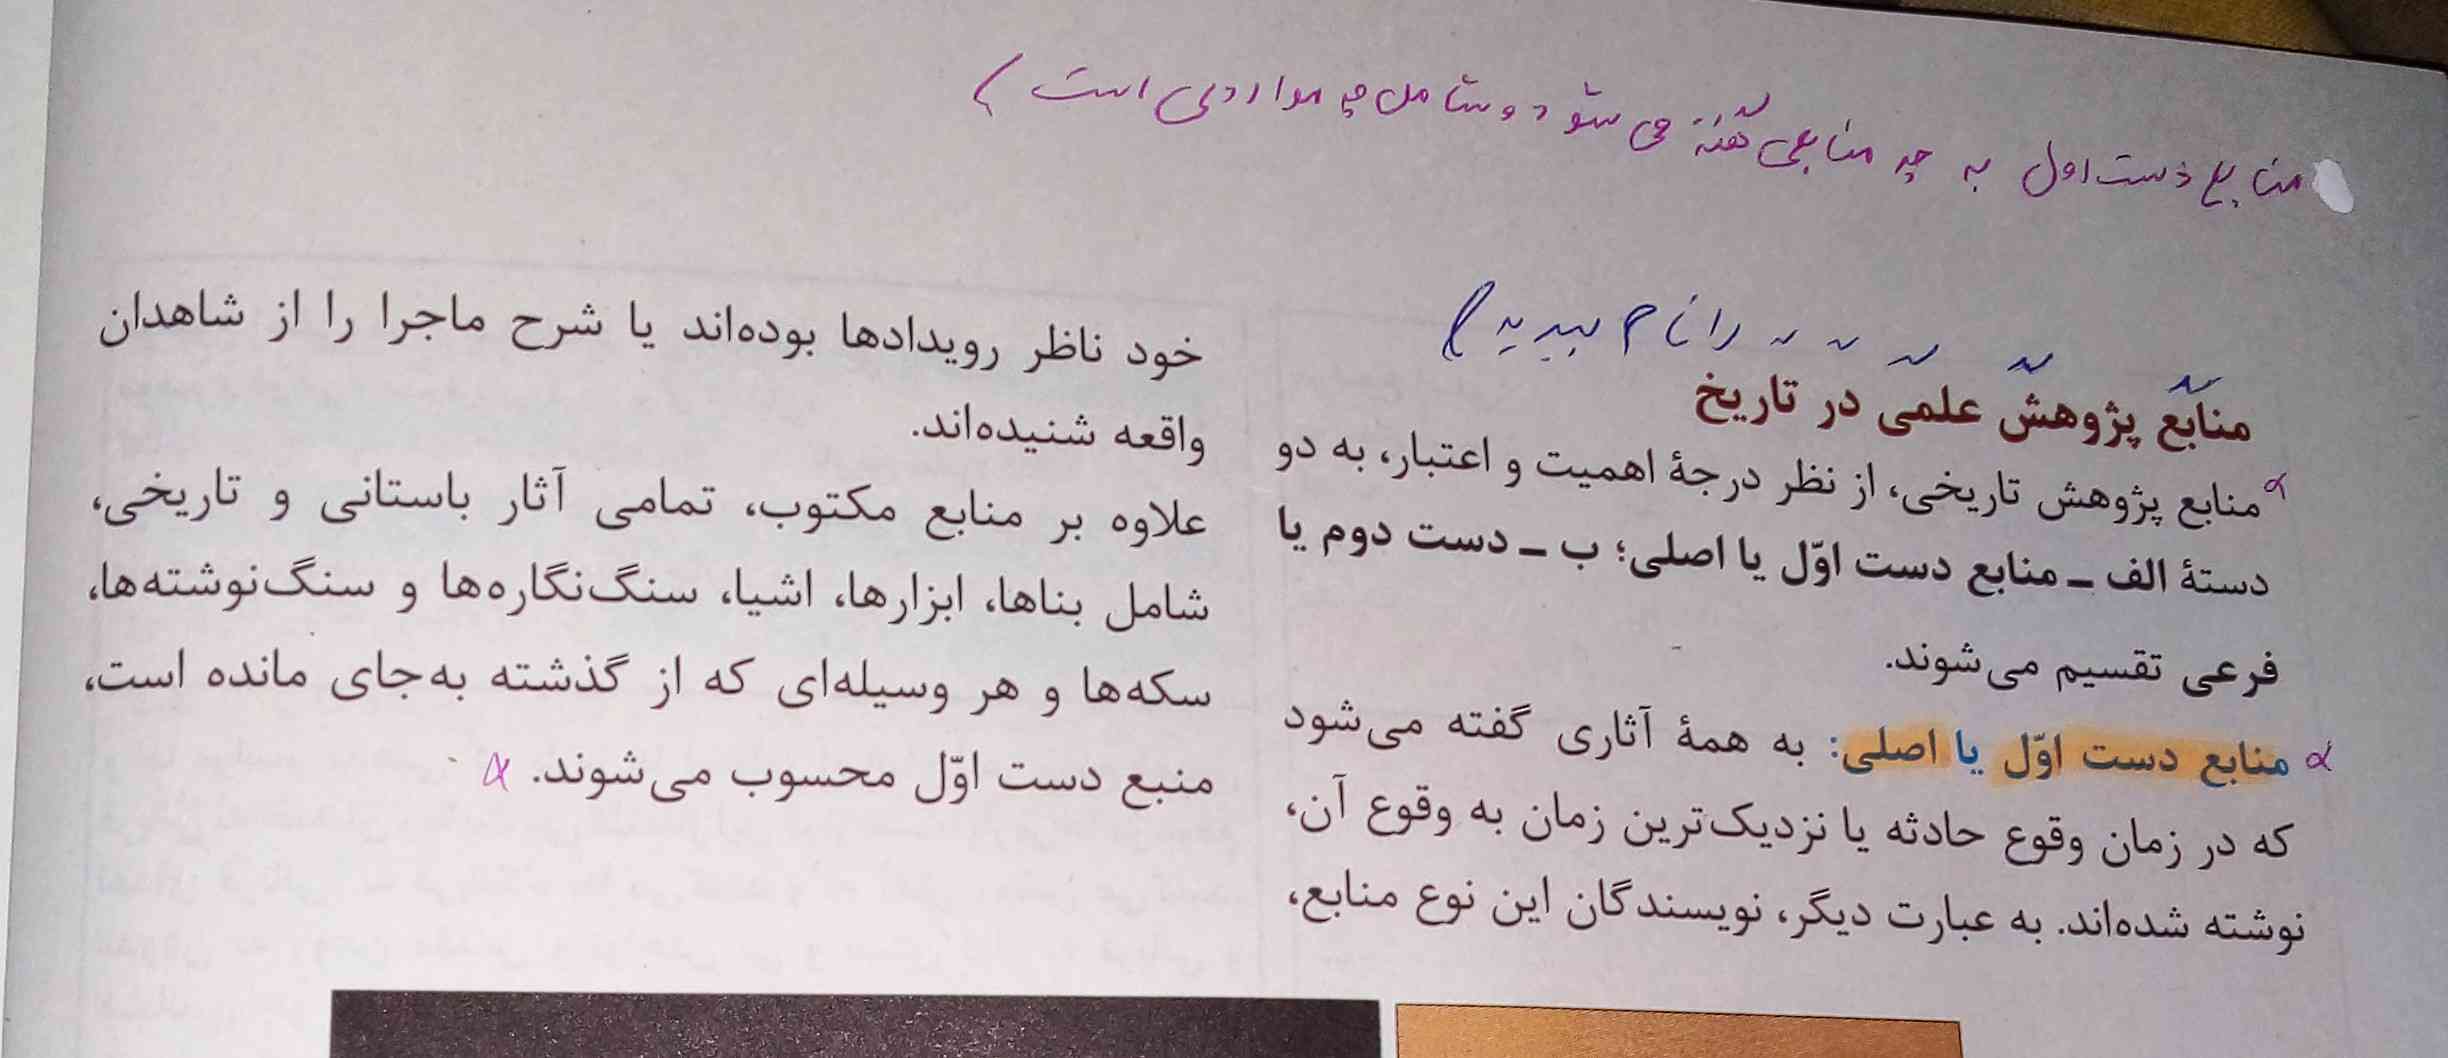 منابع دست اول به چه منابعی گفته می شود و شامل چه مواردی است؟
را نام ببرید؟
منابع پژوهش علمی در تاریخ
منابع پژوهش تاریخی، از نظر درجهٔ اهمیت و اعتبار، به دو
دستهٔ الف ـ منابع دست اوّل یا اصلی؛ ب ـ دست دوم یا
فرعی تقسیم می‌شوند.
منابع دست اوّل یا اصلی: به همهٔ آثاری گفته می‌شود
که در زمان وقوع حادثه یا نزدیک‌ترین زمان به وقوع آن،
نوشته شده‌اند. به عبارت دیگر، نویسندگان این نوع منابع،
خود ناظر رویدادها بوده‌اند یا شرح ماجرا را از شاهدان
واقعه شنیده‌اند.
علاوه بر منابع مکتوب، تمامی آثار باستانی و تاریخی،
شامل بناها، ابزارها، اشیا، سنگ‌نگاره‌ها و سنگ‌نوشته‌ها،
سکه‌ها و هر وسیله‌ای که از گذشته به‌جای مانده است،
منبع دست اوّل محسوب می‌شوند.